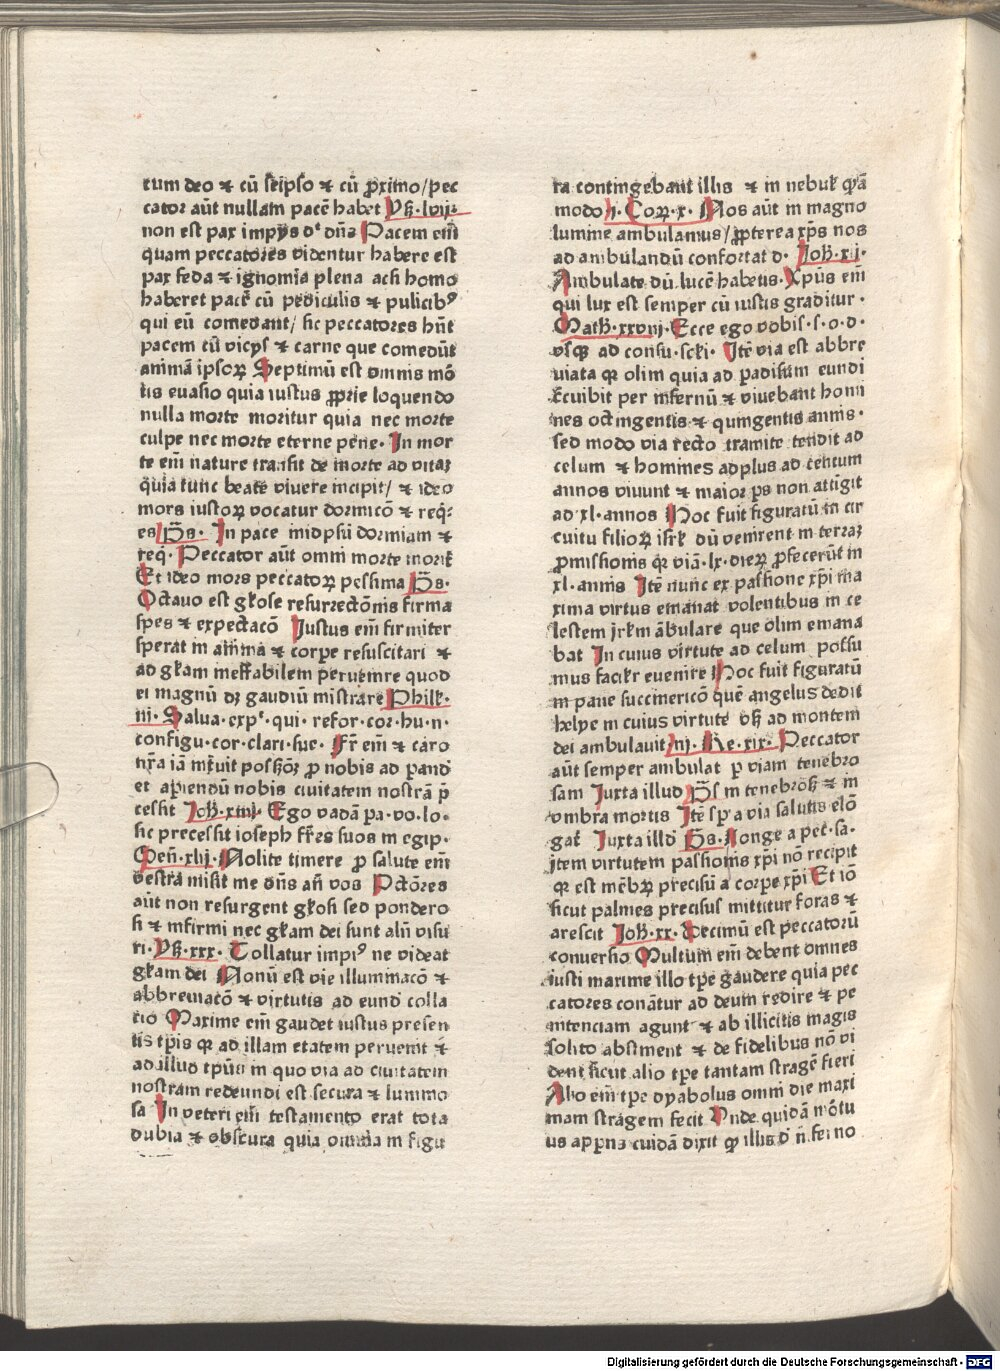 tum deo ⁊ cū seipso ⁊ cū ꝓximo/pec
cator aūt nullam pacē habet Ysa·lvij·
non est pax impijs dꝰ dn̄s Pacem em̄
quam peccatores videntur habere est
pax feda ⁊ ignomīa plena ach homo
haberet pacē cū pediculis ⁊ pulicibꝰ
qui eū comedant/ sic peccatores hn̄t
pacem cū vicijs ⁊ carne que comedūt
animā ipsoꝝ Septimū est omnis mō
tis euasio quia iustus ꝓprie loquendo
nulla morte moritur quia nec morte
culpe nec morte eterne pene· In mor
te em̄ nature transit de morte ad vitaꝫ
quia tunc beate viuere incipit/ ⁊ ideo
mors iustoꝝ vocatur dormicō ⁊ req̄:
es p̄s· In pace in idpsū dormiam ⁊
req̄· Peccator aūt omni morte morit̄
Et ideo mors peccatoꝝ pessima p̄s·
Octauo est głose resurrectōnis firma
spes ⁊ expectacō Iustus em̄ firmiter
sperat in aīma ⁊ corpe resuscitari ⁊
ad głam ineffabilem peruenire quod
ei magnū dꝫ gaudiū mistrare Philip̄·
iij· Salua·expꝰ·qui·refor·cor·hu·n·
configu·cor·clari·sue· Fr̄ em̄ ⁊ caro
nr̄a iā intuit possōꝫ ꝓ nobis ad pand
et apiendū nobis ciuitatem nostrā p̄
cessit Joh̄·xiiij· Ego vadā pa·vo·lo·
sic precessit ioseph fr̄es suos in egip·
Gen̄·xlij· Nolite timere ꝓ salute em̄
vestra misit me dn̄s an̄ vos Pctōres
aūt non resurgent głosi sed pondero
si ⁊ infirmi nec głam dei sunt alīi visu
ri· Ysa·xxx· Tollatur impiꝰ ne videat
głam dei Nonū est vie illuminacō ⁊
abbreuiacō ⁊ virtutis ad eundū colla
tio Maxime em̄ gaudet iustus presen
tis tp̄is qꝫ ad illam etatem peruenit ⁊
ad illud tp̄us in quo via ad ciuitatem
nostram redeundi est secura ⁊ lumino
sa In veteri em̄ testamento erat tota
dubia ⁊ obscura quia omnia in figu
ra contingebant illis ⁊ in nebuł q̄dā
modo j· Corꝝ·x· Nos aūt in magno
lumine ambulamus/ꝓpterea xp̄s nos
ad ambulandū confortat d· Joh̄·xij·
Ambulate dū lucē habetis· Xpūs em̄
qui lux est semper cū iustis graditur·
Math̄·xxviij· Ecce ego vobis·s·o·d·
vsqꝫ ad consu·scłi· Itē via est abbre
uiata qꝫ olim quia ad padisum eundi
t̄cuibit per infernū ⁊ viuebant homi
nes octingentis ⁊ quingentis annis·
sed modo via recto tramite tendit ad
celum ⁊ hommes adplus ad centum
annos viuunt ⁊ maior ps non attigit
ad xl·annos Hoc fuit figuratū in cir
cuitu filioꝝ isrł dū venirent in terraꝫ
ꝓmissionis qꝫ viā·lx·dieꝝ ꝓfecerūt in
xl·annis Itē nunc ex passione xp̄i ma
xima virtus emanat volentibus in ce
lestem jrłm ābulare que olim emana
bat In cuius virtute ad celum possu
mus facilr̄ euenire Hoc fuit figuratū
in pane succinericō quē angelus dedit
helye in cuius virtute deb̄ ad montem
dei ambulauit iij· Re·xix· Peccator
aūt semper ambulat p viam tenebro
sam Iuxta illud p̄s in tenebrꝫ ⁊ in
vmbra mortis Itē spꝰa via salutis elō
gat̄ Iuxta illd p̄s· Longe a pec·sa·
jtem virtutem passionis xp̄i nō recipit
qꝫ est mēbꝝ precisū a corpe xp̄i Et iō
sicut palmes precisus mittitur foras ⁊
arescit Joh̄·xv· Decimū est peccatorū
conuersio Multum em̄ debent omnes
iusti maxime illo tp̄e gaudere quia pec
catores conātur ad deum redire ⁊ pe
nitenciam agunt ⁊ ab illicitis magis
solito abstinent ⁊ de fidelibus nō vi
dent sicut alio tp̄e tantam stragē fieri
Alio em̄ tp̄e dyabolus omni die maxi
mam stragem fecit Vnde quidā mōtu
us appens cuidā dixit qꝫ illis d n̄·fei no